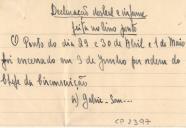 Declaração
feita no livro ponto
O Ponto do dia 29 e 30 de Abril e 1 Maio
foi encerrado em 3 de Junho por ordem do
Chefe da Circunscrição
a) Gabri
CP 2397